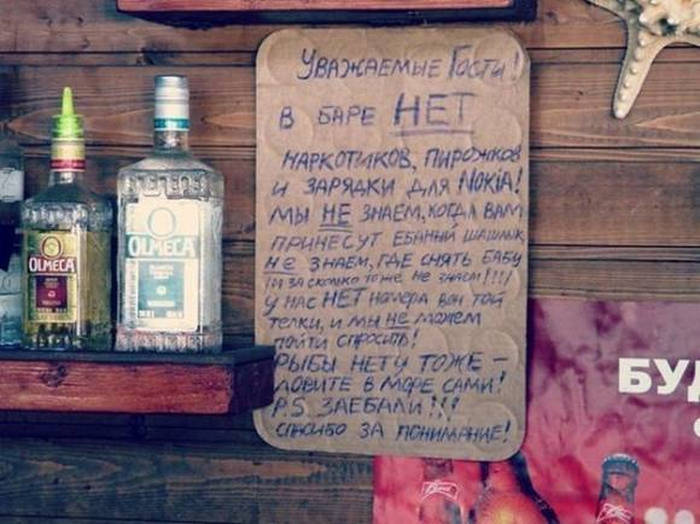 Уважаемые Гости!
В БАРЕ НЕТ
НАРКОТИКОВ, ПИРОЖКОВ
И ЗАРЯДКИ ДЛЯ NOKIA!
МЫ НЕ ЗНАЕМ, КОГДА ВАМ
ПРИНЕСУТ ЕБАНЫЙ ШАШЛЫК,
НЕ ЗНАЕМ, ГДЕ СНЯТЬ БАБУ
(И ЗА СКОЛЬКО ТОЖЕ НЕ ЗНАЕМ)!!!!
У НАС НЕТ НОМЕРА ВОН ТОЙ
ТЕЛКИ, И МЫ НЕ МОЖЕМ
ПОЙТИ СПРОСИТЬ!
РЫБЫ НЕТУ ТОЖЕ –
ЛОВИТЕ В МОРЕ САМИ!
P.S. ЗАЕБАЛИ!!!
СПАСИБО ЗА ПОНИМАНИЕ!
OLMECA
OLMECA
БУД